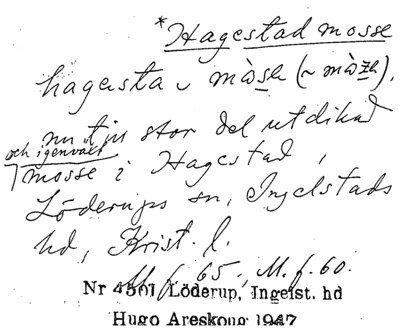 *Hagestad mosse
hagersta ∪ màsse (~ màzze),
nu till stor del utdikad
och igenväxt
mosse i Hagestad,
Löderups sn, Ingelstads
hd, Krist. l.
M. f. 65, M. f. 60.
Nr 4501 Löderup, Ingelst. hd
Hugo Areskoug 1947